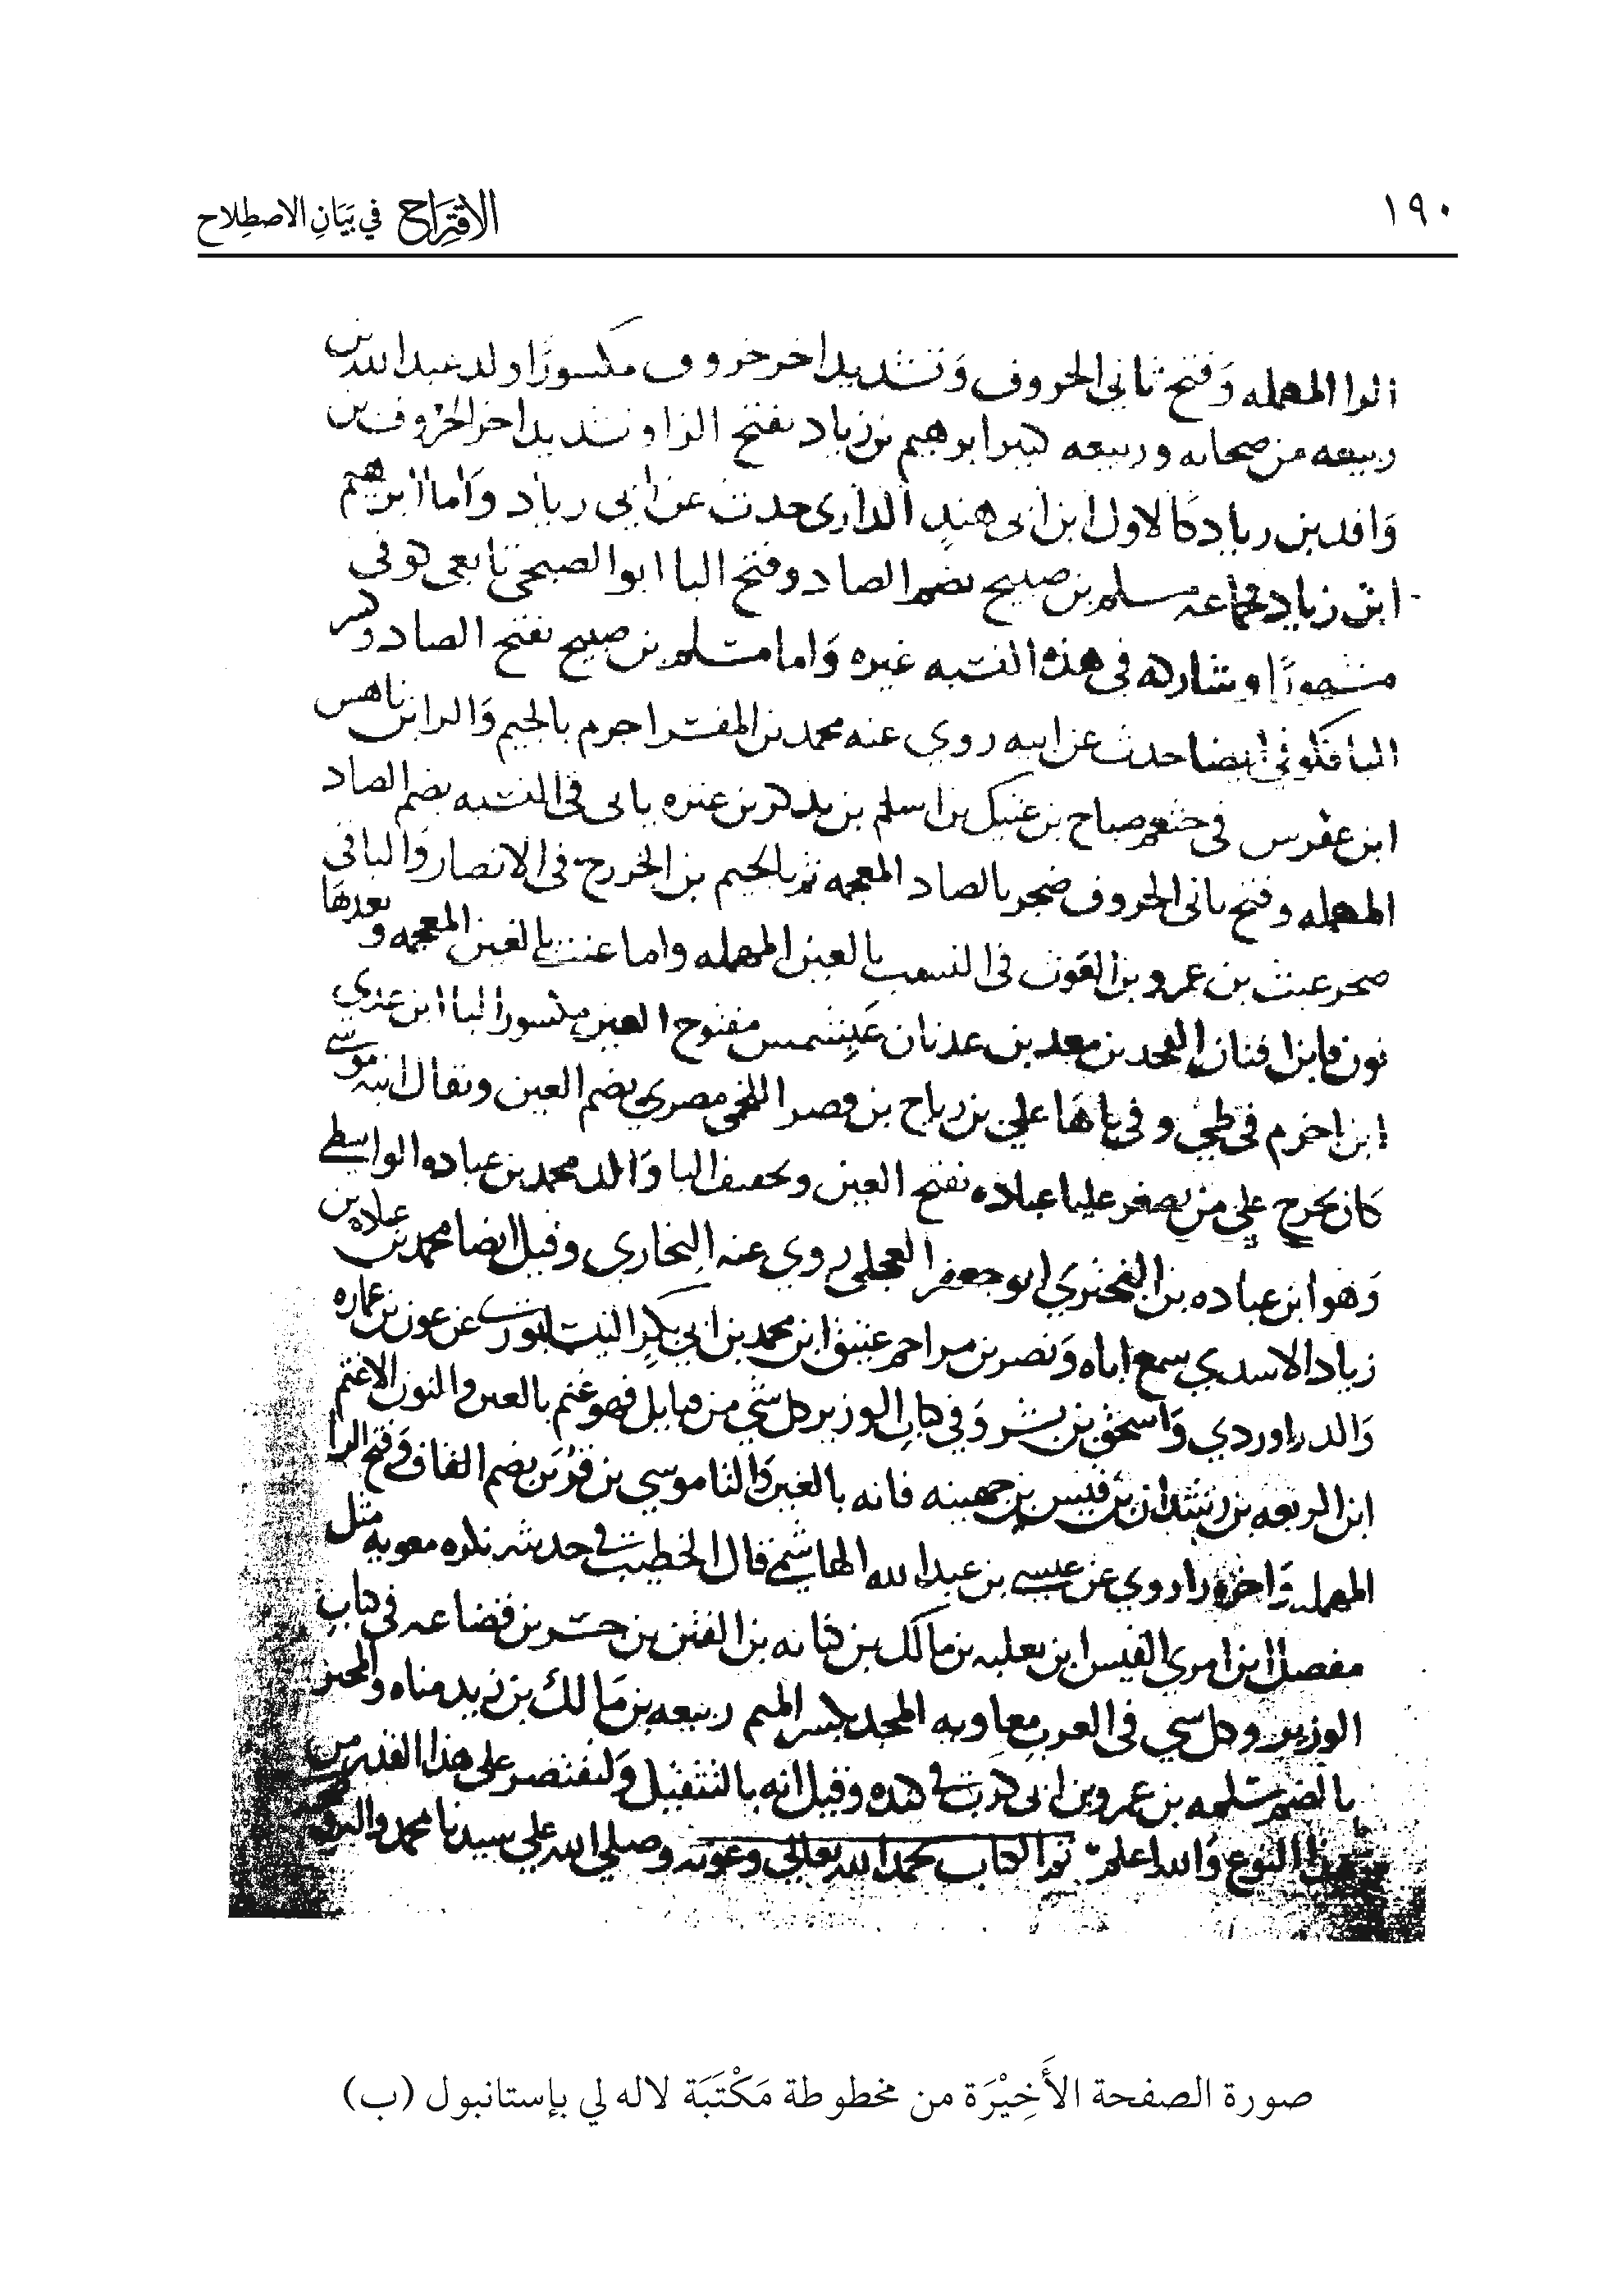 ١٩٠
الاقْتِرَاح في بَيَانِ الاصطِلاح
الرا المهمله وَفتح ثاني الحروف وَتشديد اخر حروف مكسورًا ولد عبد الله بن
ربيعه من صحابه وربيعه ابرهيم بن زياد بفتح الزا وتشديد اخر الحروف بن
وَافد بن زياد كالاول ابن ابى هند الدارى حدث عن ابي زياد وَاما ابرهيم
ابن زياد فجماعه مسلم بن صبيح بضم الصاد وفتح البا ابو الضحى تابعى كوفى
مشهورًا وشاركه فى هذه النسبه غيره وَاما مسلم بن صبيح بفتح الصاد وكسر
البا فكوفي ايضا حدث عن ابيه روي عنه محمد بن جرم بالجيم وَالرا بن ناهس
ابن عفرس فى خثعم صباح بن عتيك بن اسلم بن يذكر بن عنزه ياتى فى النسبه بضم الصاد
المهمله وفتح ثانى الحروف ضجر بالضاد المعجمه ثم بالجيم بن الخزرج فى الانصار وَالباقى
صخر عبث بن عمرو بن الغوث فى النسب بالعين المهمله واما غنث بالغين المعجمه وَبعدها
نون فابن افنان بن القحد بن معد بن عدنان عَبِشمس مفتوح العين مكسور البا ابن عدي
ابن اخزم فى طى وفي باها علي بن رباح بن قصر اللخمى مصري بضم العين ويقال ابنه موسى
كان يحرج علي من يصغر عليا عباده بفتح العين وتخفيف البا وَالد محمد بن عباده الواسطى
وَهو ابن عباده بن البختري ابو جعفر العجلى روي عنه البخاري وقيل ايضا محمد بن عباده بن
زياد الاسدي سمع اباه وَنصر بن مزاحم عتيق ابن محمد بن ابي بكر النيسابوري عن عون بن عماره
وَالدراوردي وَاسحق بن بشر وَفي كتاب الوزير كل شي من قبايل فهو غنم بالغين والنون الا عثم
ابن الربعه بن رشدان بن قيس بن جهينه فانه بالعين وَالثا موسى بن قُرَين بضم القاف وَفتح الرا
المهمله وَاخره را روي عن عيسى بن عبد الله الهاشمى قال الخطيب في حديثه نكره معويه مثل
مفصل ابن امري القيس ابن ثعلبه بن مالك بن كنانه بن القين بن جسر بن قضاعه فى كتاب
الوزير وكل شي فى العرب معاويه المجد بكسر الميم ربيعه بن مَالك بن زيد مناه والمحبر
بالضم سلمه بن عمرو بن ابى كرب في كنده وقيل انه بالتثقيل وَلنقتصر على هذا القدر من
هذا النوع وَالله اعلم تم الكتاب بحمد الله تعالي وعونه وصلي الله علي سيدنا محمد واله وصحبه
صورة الصفحة الأَخِيْرَة من مخطوطة مَكْتَبَة لاله لي بإستانبول (ب)